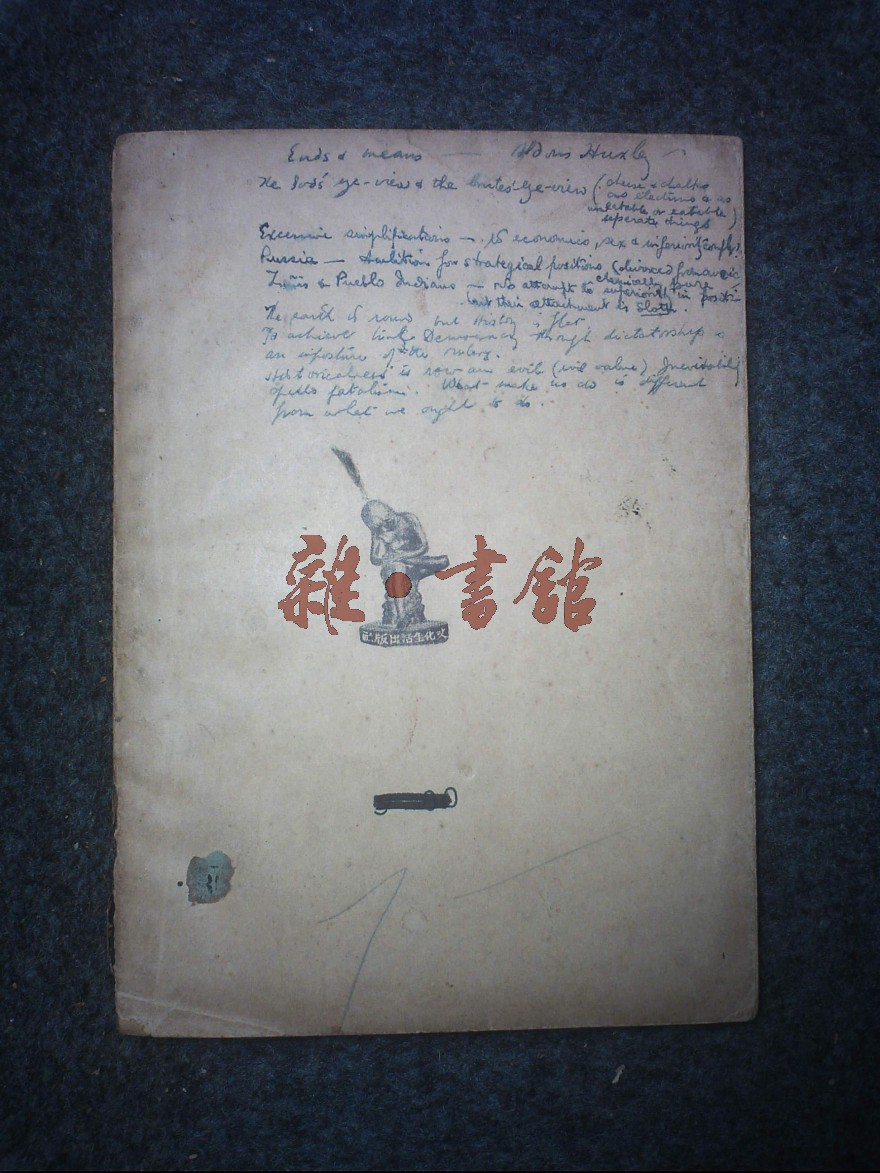 Ends & means — Aldous Huxley
The God's eye-view & the brutes' eye-view (cheese & chalk
as electrons & as
uneatable or eatable
seperate things)
Excessive simplifications — is economics, sex & inferiority
Russia — Ambition for strategical positions (divorced from
Zuñis & Pueblo Indians — No attempt to superiority in
chemically pure
but their attachment is sloth.
The earth is round but History is flat
To achieve Democracy through dictatorship is
an imposture of the rulers.
Historicalness is now an evil (evil value) Inevitability
spells fatalism. What make us do is different
from what we ought to do.
雜·書館
文化生活出版社